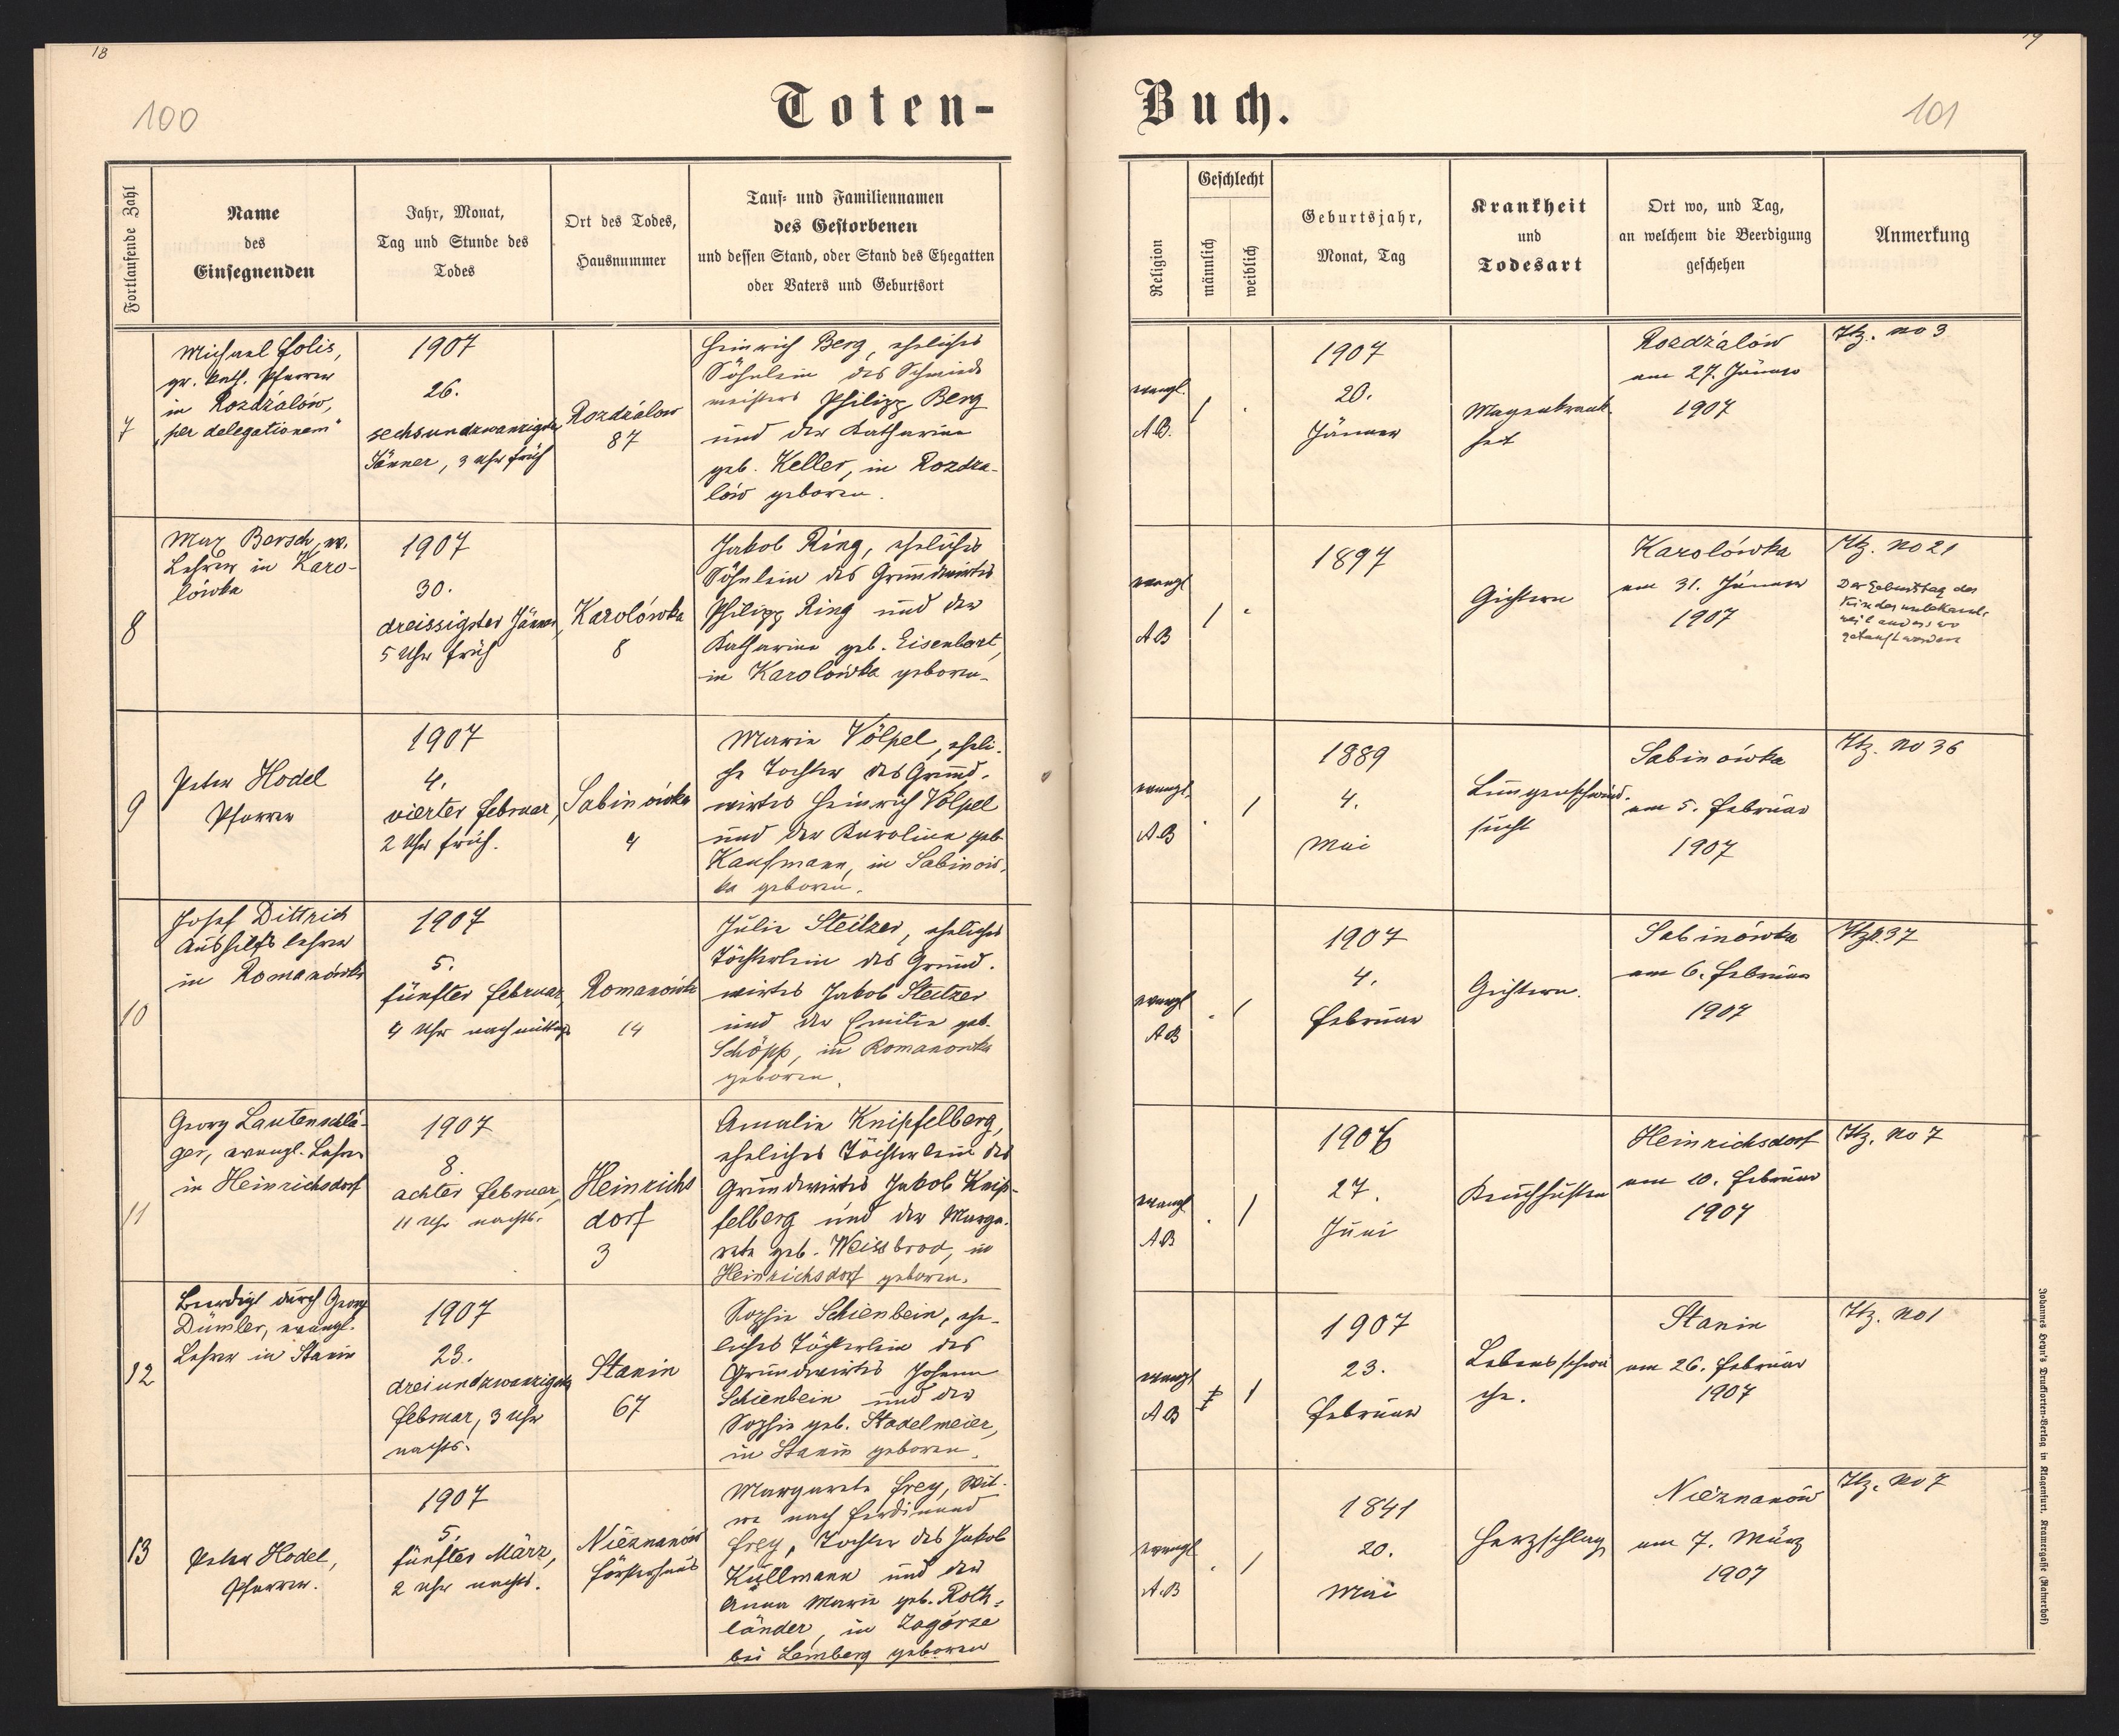 18
100
Toten-
Fortlaufende Zahl
Name
des
Einsegnenden
Jahr, Monat,
Tag und Stunde des
Todes
Ort des Todes,
Hausnummer
Tauf- und Familiennamen
des Gestorbenen
und dessen Stand, oder Stand des Ehegatten
oder Vaters und Geburtsort
7
Michael Folis,
gr. kath. Pfarrer
in Rozdżalów,
"per delegationem"
1907
26.
sechsundzwanzigster
Jänner, 3 Uhr früh
Rozdżalow
87
Heinrich Berg, eheliches
Söhnlein des Schmiede
meisters Philipp Berg
und der Katharina
geb. Keller, in Rozdza-
lów geboren.
8
Max Bersch, ev.
Lehrer in Karo-
lówka
1907
30.
dreissigster Jänner,
5 Uhr früh
Karolówka
8
Jakob Ring, eheliches
Söhnlein des Grundwirtes
Philipp Ring und der
Katharina geb. Eisenbart,
in Karolówka geboren.
9
Peter Hodel
Pfarrer
1907
4.
vierter Februar,
2 Uhr früh.
Sabinówka
4
Marie Völpel, eheli-
che Tochter des Grund-
wirtes Heinrich Völpel
und der Karolina geb.
Kaufmann, in Sabinów-
ka geboren.
10
Josef Dittrich
Aushilfslehrer
in Romanówka
1907
5.
fünfter Februar
4 Uhr nachmittags
Romanówka
14
Julie Steitzer, eheliches
Töchterlein des Grund-
wirtes Jakob Steitzer
und der Emilie geb.
Schöpp, in Romanowka
geboren.
11
Georg Lautenschlä-
ger, evangl. Lehrer
in Heinrichsdorf
1907
8.
achter Februar,
11 Uhr nachts.
Heinrichs
dorf
3
Amalie Knipfelberg,
eheliches Töchterlein des
Grundwirtes Jakob Knip-
felberg und der Marga-
reta geb. Weissbrod, in
Heinrichsdorf geboren.
12
Beerdigt durch Georg
Dümler, evangl.
Lehrer in Stanin
1907
23.
dreiundzwanzigster
Februar, 3 Uhr
nachts.
Stanin
67
Sophie Schienbein, ehe-
liches Töchterlein des
Grundwirtes Johann
Schienbein und der
Sophie geb. Stadelmeier,
in Stanin geboren.
13
Peter Hodel,
Pfarrer.
1907
5.
fünfter März,
2 Uhr nachts.
Nieznanów
Försterhaus
Margareta Frey, Wit-
we nach Ferdinand
Frey, Tochter des Jakob
Kullmann und der
Anna Marie geb. Roth-
länder, in Zagórze
bei Lemberg geboren
19
101
Buch.
Religion
Geschlecht
männlich
weiblich
Geburtsjahr,
Monat, Tag
Krankheit
und
Todesart
Ort wo, und Tag,
an welchem die Beerdigung
geschehen
Anmerkung
evangl.
A.B.
1907
20.
Jänner
Magenkrank-
heit
Rozdżalów
am 27. Jänner
1907
Itz. No 3
evangl
AB
1897
Gichtern
Karolówka
am 31. Jänner
1907
Itz. No 21
Der Geburtstag des
Kindes unbekannt,
weil anderswo
getauft worden
evangl.
AB
1889
4.
Mai
Lungenschwind-
sucht
Sabinówka
am 5. Februar
1907
Itz. No 36
evangl
AB
1907
4.
Februar
Gichtern.
Sabinówka
am 6. Februar
1907
evangl
AB
1906
27.
Juni
Keuchhusten
Heinrichsdorf
am 10. Februar
1907
Itz. No 7
evangl
AB
1907
23.
Februar
Lebensschwä
che.
Stanin
am 26. Februar
1907
Itz. No 1
evangl
A.B
1841
20.
Mai
Herzschlag
Nieznanów
am 7. März
1907
Itz. No 7
Johannes Heyn's Drucksorten-Verlag in Klagenfurt, Kramergasse (Rainerhof)